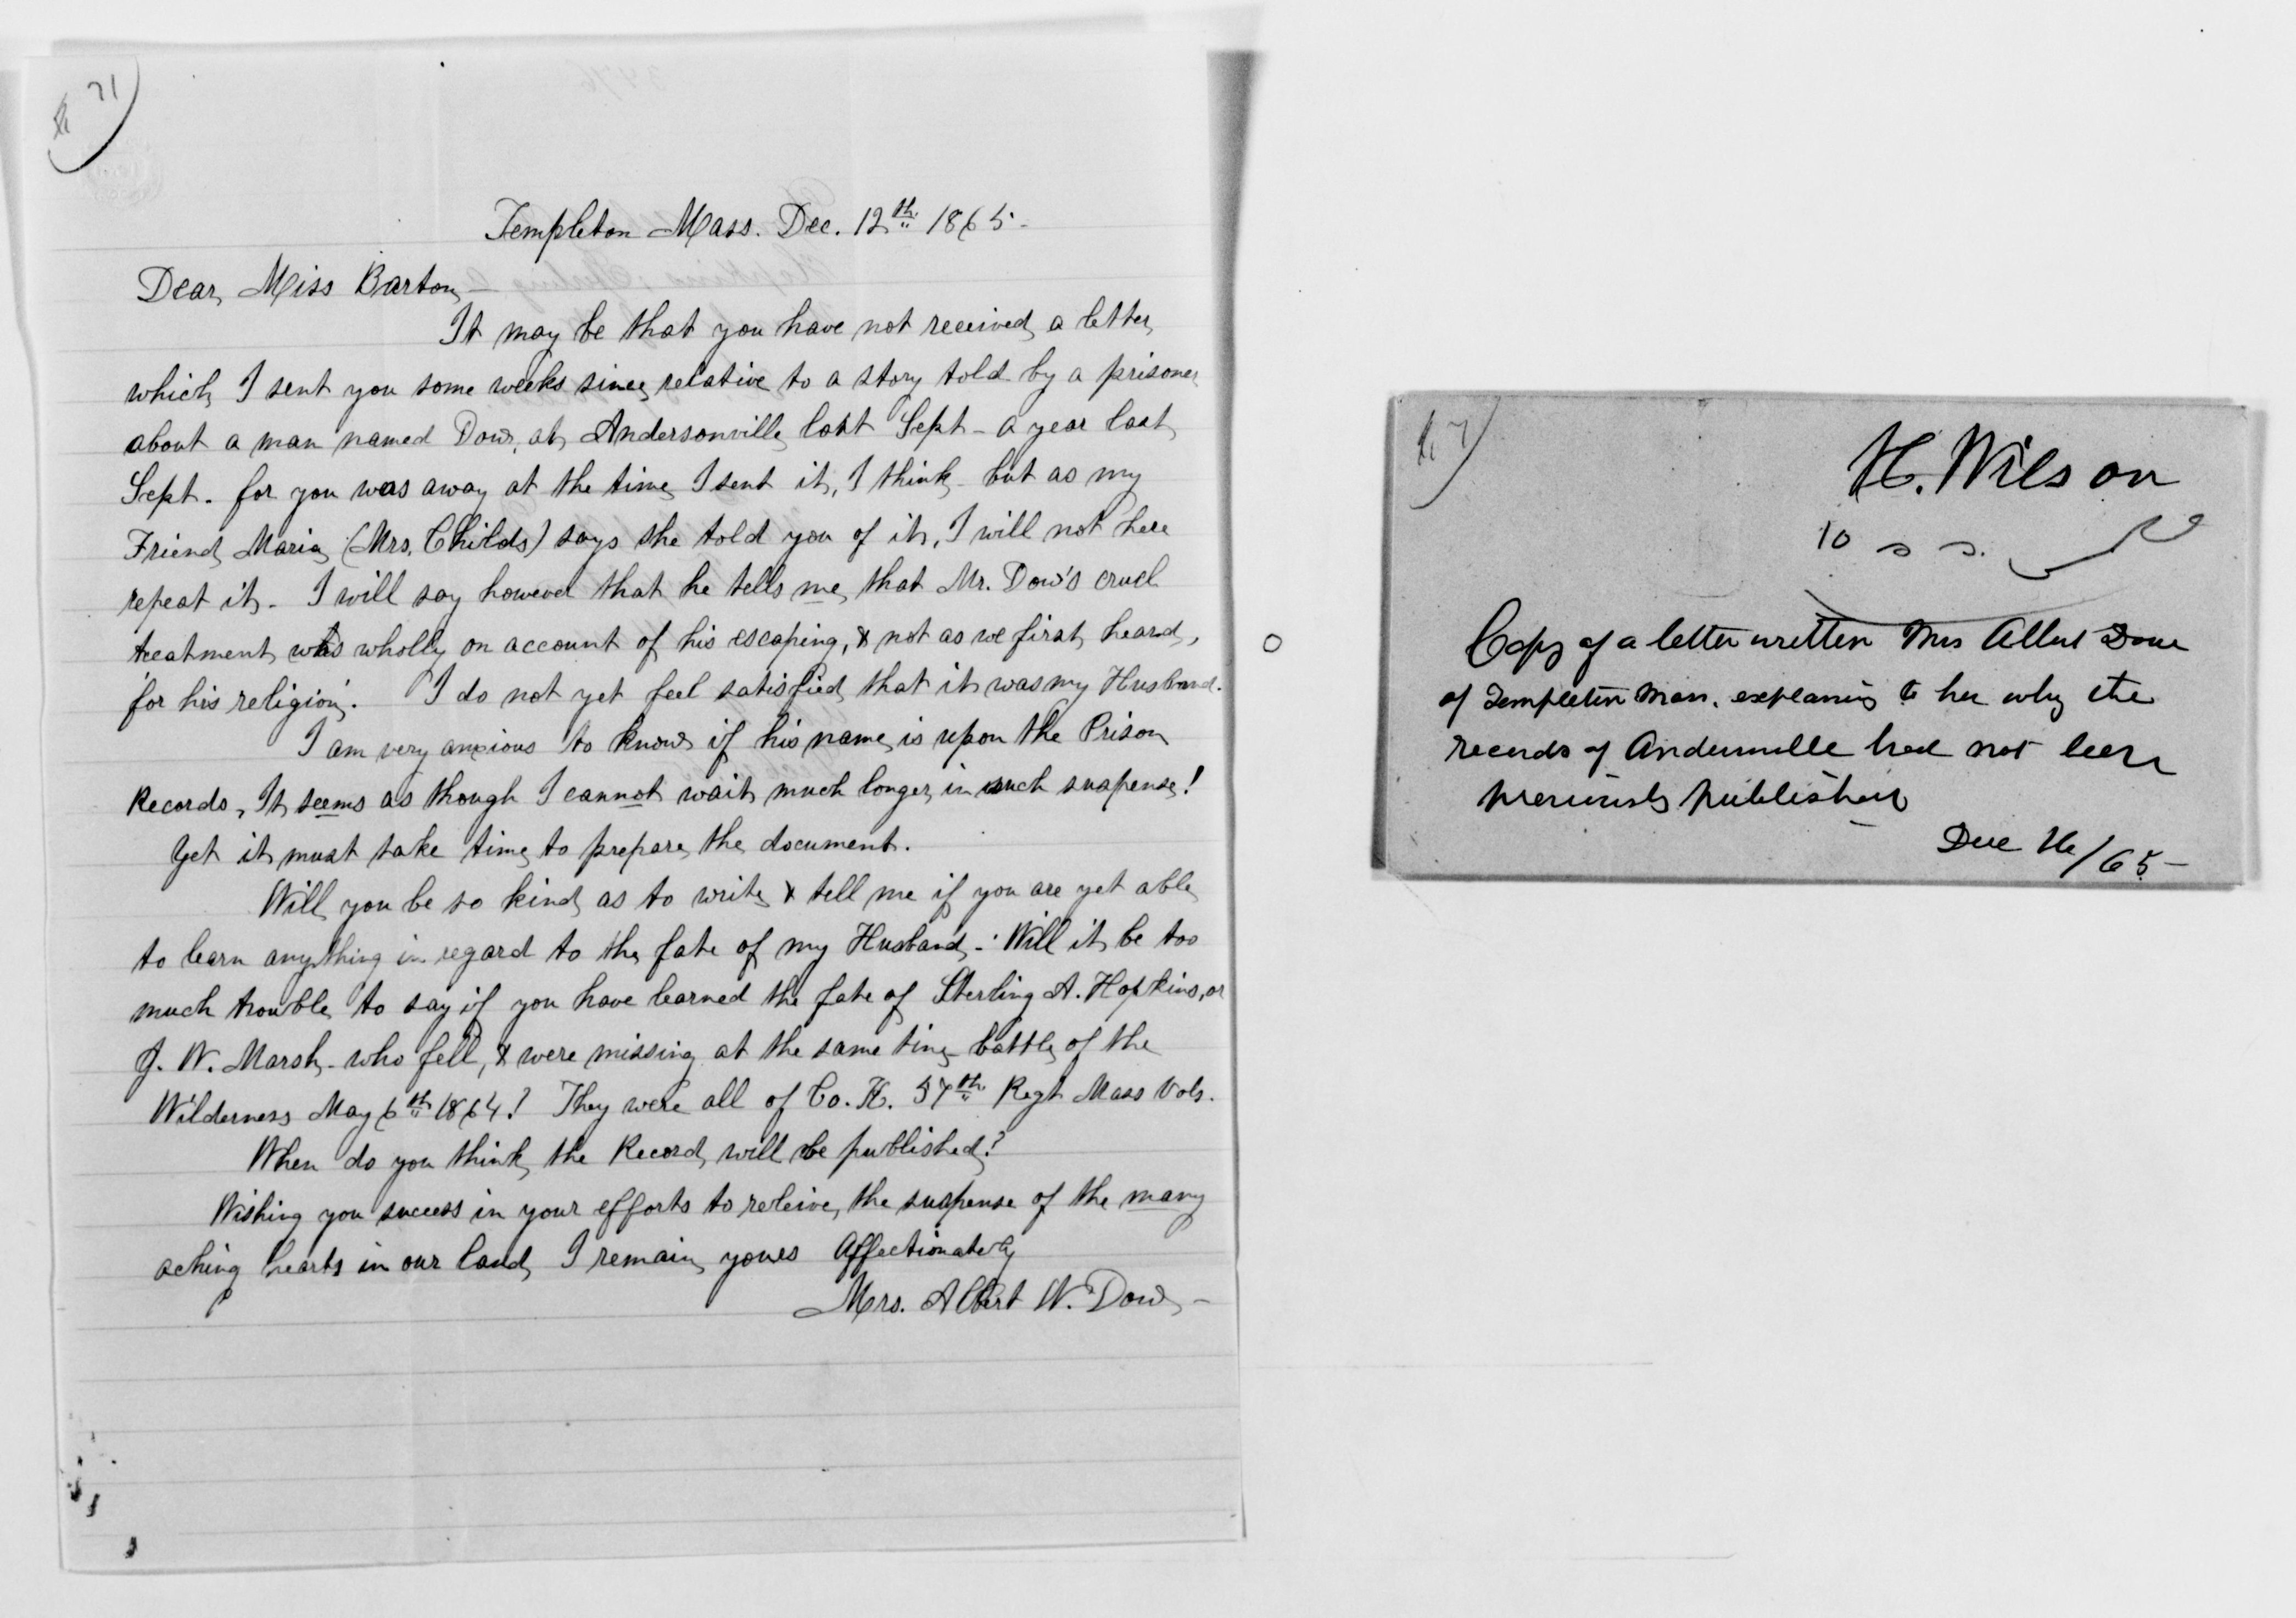 71
Templeton Mass. Dec. 12th 1865-
Dear Miss Barton -
It may be that you have not received a letter
which I sent you some weeks since relative to a story told by a prisoner
about a man named Dow, at Andersonville last Sept - a year last
Sept. for you was away at the time I sent it, I think - but as my
Friend Maria (Mrs. Childs) says she told you of it, I will not here
repeat it - I will say however that he tells me that Mr. Dow's cruel
treatment was wholly on account of his escaping, & not as we first heard,
'for his religion'. I do not yet feel satisfied that it was my Husband.
I am very anxious to know if his name is upon the Prison
Records, It seems as though I cannot wait much longer in such suspense!
Yet it must take time to prepare the document.
Will you be so kind as to write & tell me if you are yet able
to learn anything in regard to the fate of my Husband - Will it be too
much trouble to say if you have learned the fate of Sterling A. Hopkins, or
J. W. Marsh - who fell, & were missing at the same time - battle of the
Wilderness May 6th 1864? They were all of Co. K. 57th Regt Mass Vols.
When do you think the Record will be published?
Wishing you success in your efforts to releive the suspense of the many
aching hearts in our land, I remain yours Affectionately
Mrs. Albert W. Dow -
H. Wilson
10
Copy of a letter written Mrs Albert Dow
of Templeton Mass. explaining to her why the
records of Andersonville had not been
previously published
Dec 16/65-